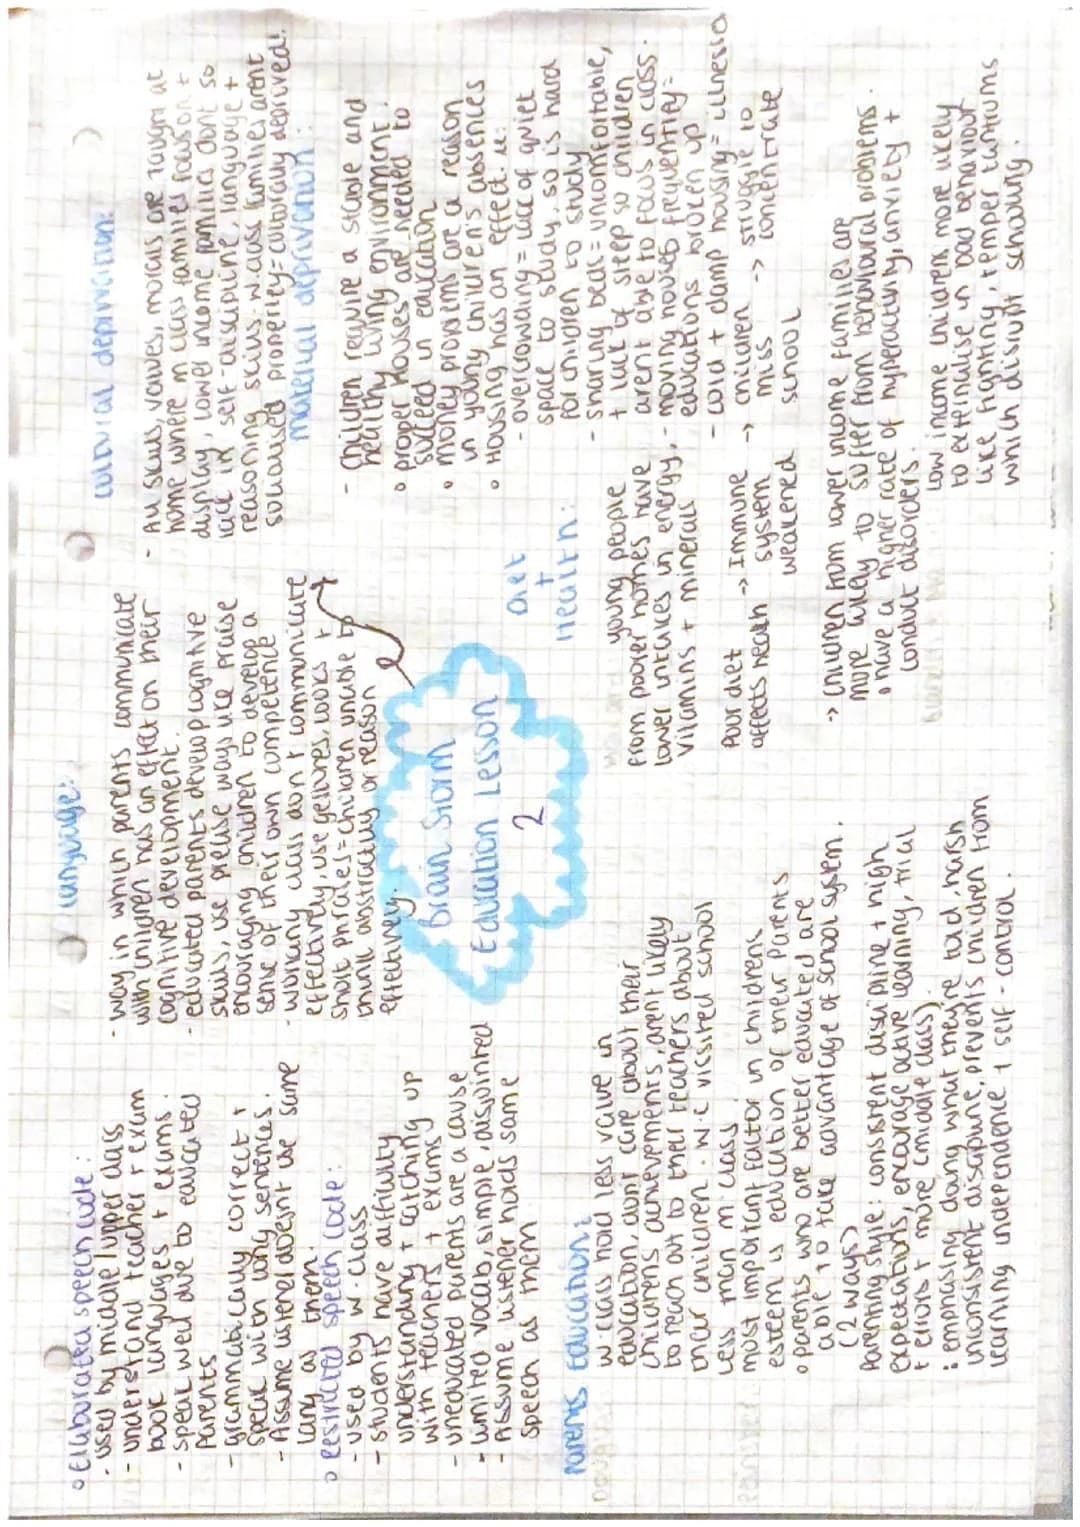 o Elaborated speech code:
- used by middle/upper class
- understand teacher + exam
book languages + exams.
- speak well due to educated
parents
- grammatically correct +
speak with long sentences.
- Assume listener doesnt use same
lang as them.
o Restricted speech code:
- used by w.class
- students have difficulty
understanding + catching up
with teachers + exams
- uneducated parents are a cause
- Limited vocab, simple, disjointed
- Assume listener holds same
speech as them
language:
- way in which parents communicate
with children has an effect on their
cognitive development.
- educated parents develop cognitive
skills, use precise ways like praise
encouraging children to develop a
sense of their own competence
- working class don't communicate
effectively, use gestures, looks +
short phrases = children unable to
think abstractly or reason
effectively.
cultural deprivation:
- All skills, values, morals are taught at
home where m class families focus on +
display, lower income families dont so
lack in self-discipline, language +
reasoning skills. w.class families arent
socialised properley = culturally deprived!
material deprivation:
- Children require a stable and
healthy living environment.
o proper houses are needed to
succeed in education
o money problems are a reason
in young children's absences
o Housing has an effect ie:
- overcrowding = lack of quiet
space to study, so is hard
for children to study
- sharing beds = uncomfortable,
+ lack of sleep so children
arent able to focus in class.
- moving houses frequently =
educations broken up
- cold + damp housing = illness
Brain Storm
Education Lesson
2
Diet
+
Health:
young people
from poorer homes have
lower intakes in energy,
vitamins + minerals
Poor diet -> Immune -> children -> struggle to
affects health system miss concentrate
weakened school
-> Children from lower income families are
more likely to suffer from behavioural problems.
o have a higher rate of hyperactivity, anxiety +
conduct disorders.
Low income children more likely
to externalise in bad behaviour
like fighting, temper tantrums
which disrupt schooling.
Parents Education:
w.class hold less value in
education, dont care about their
childrens achievements, arent likely
to reach out to their teachers about
their children. w.c vissited school
less than m.class
most important factor in childrens
esteem is education of their parents
o parents who are better educated are
able to take advantage of school system.
(2 ways)
Parenting style: consistent discipline + high
expectations, encourage active learning, trial
+ errors + more (middle class)
: emphasing doing what theyre told, harsh
inconsistent discipline, prevents children from
learning independence + self-control.